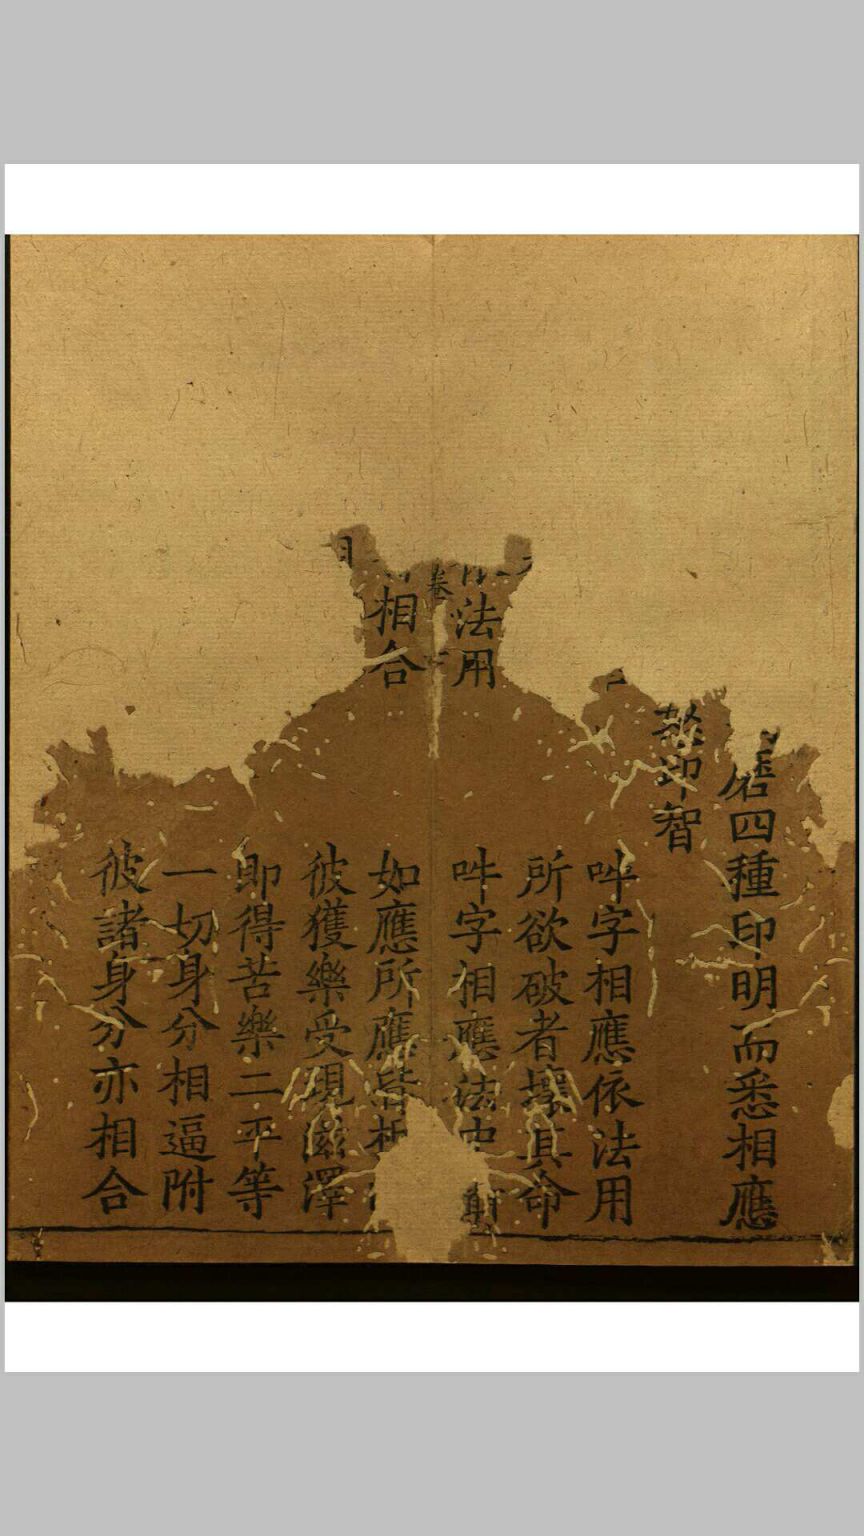 四種印明而悉相應
印智
吽字相應依法用
所欲破者壞其命
法用
吽字相應法
卷
相合
如應所應皆相
彼獲樂受現滋澤
即得苦樂二平等
一切身分相逼附
彼諸身分亦相合